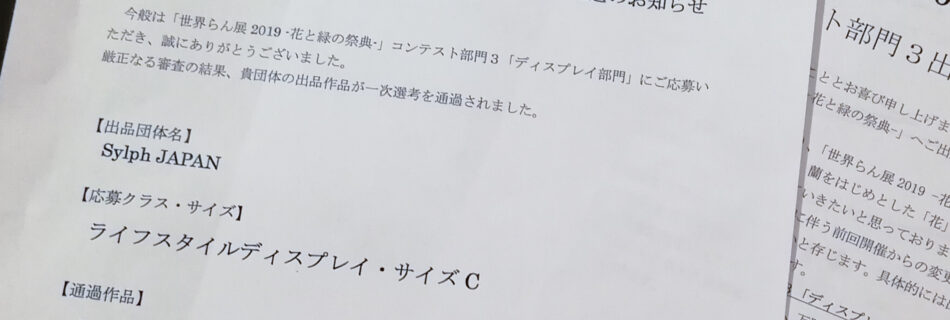 のお知らせ
今般は「世界らん展 2019 -花と緑の祭典-」コンテスト部門３「ディスプレイ部門」にご応募い
ただき、誠にありがとうございました。
厳正なる審査の結果、貴団体の出品作品が一次選考を通過されました。
【出品団体名】
Sylph JAPAN
【応募クラス・サイズ】
ライフスタイルディスプレイ・サイズ C
【通過作品】
ト部門３出
こととお喜び申し上げま
花と緑の祭典-」へご出
、「世界らん展 2019 -花
蘭をはじめとした「花」
いきたいと思っておりま
に伴う前回開催からの変更
と存じます。具体的には
す。
「ディスプレ